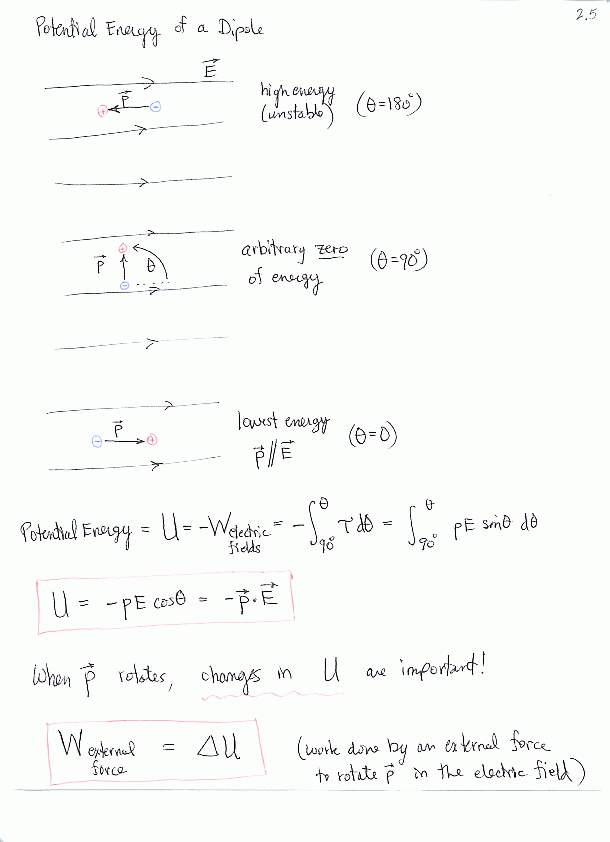 2.5
Potential Energy of a Dipole
E⃗
P⃗
⊕ ⊖
high energy
(unstable) (θ=180°)
arbitrary zero
of energy (θ=90°)
P⃗ θ
⊕
⊖
P⃗
⊖ ⊕
lowest energy
p⃗ // E⃗ (θ=0)
Potential Energy = U = -W electric fields = -∫90°^θ τ dθ = ∫90°^θ pE sinθ dθ
U = -pE cosθ = -p⃗·E⃗
When p⃗ rotates, changes in U are important!
W external force = ΔU
(work done by an external force
to rotate p⃗ in the electric field)